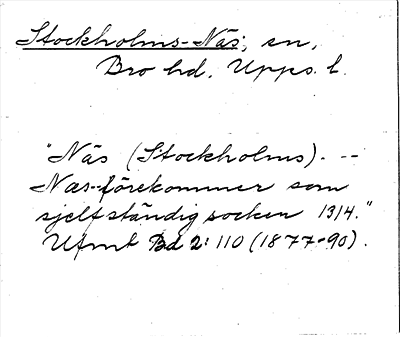 Stockholms-Näs, sn,
Bro hd, Upps. l.
"Näs (Stockholms). --
Næs förekommer som
sjelfständig socken 1314."
Ufmt Bd 2: 110 (1877-90).